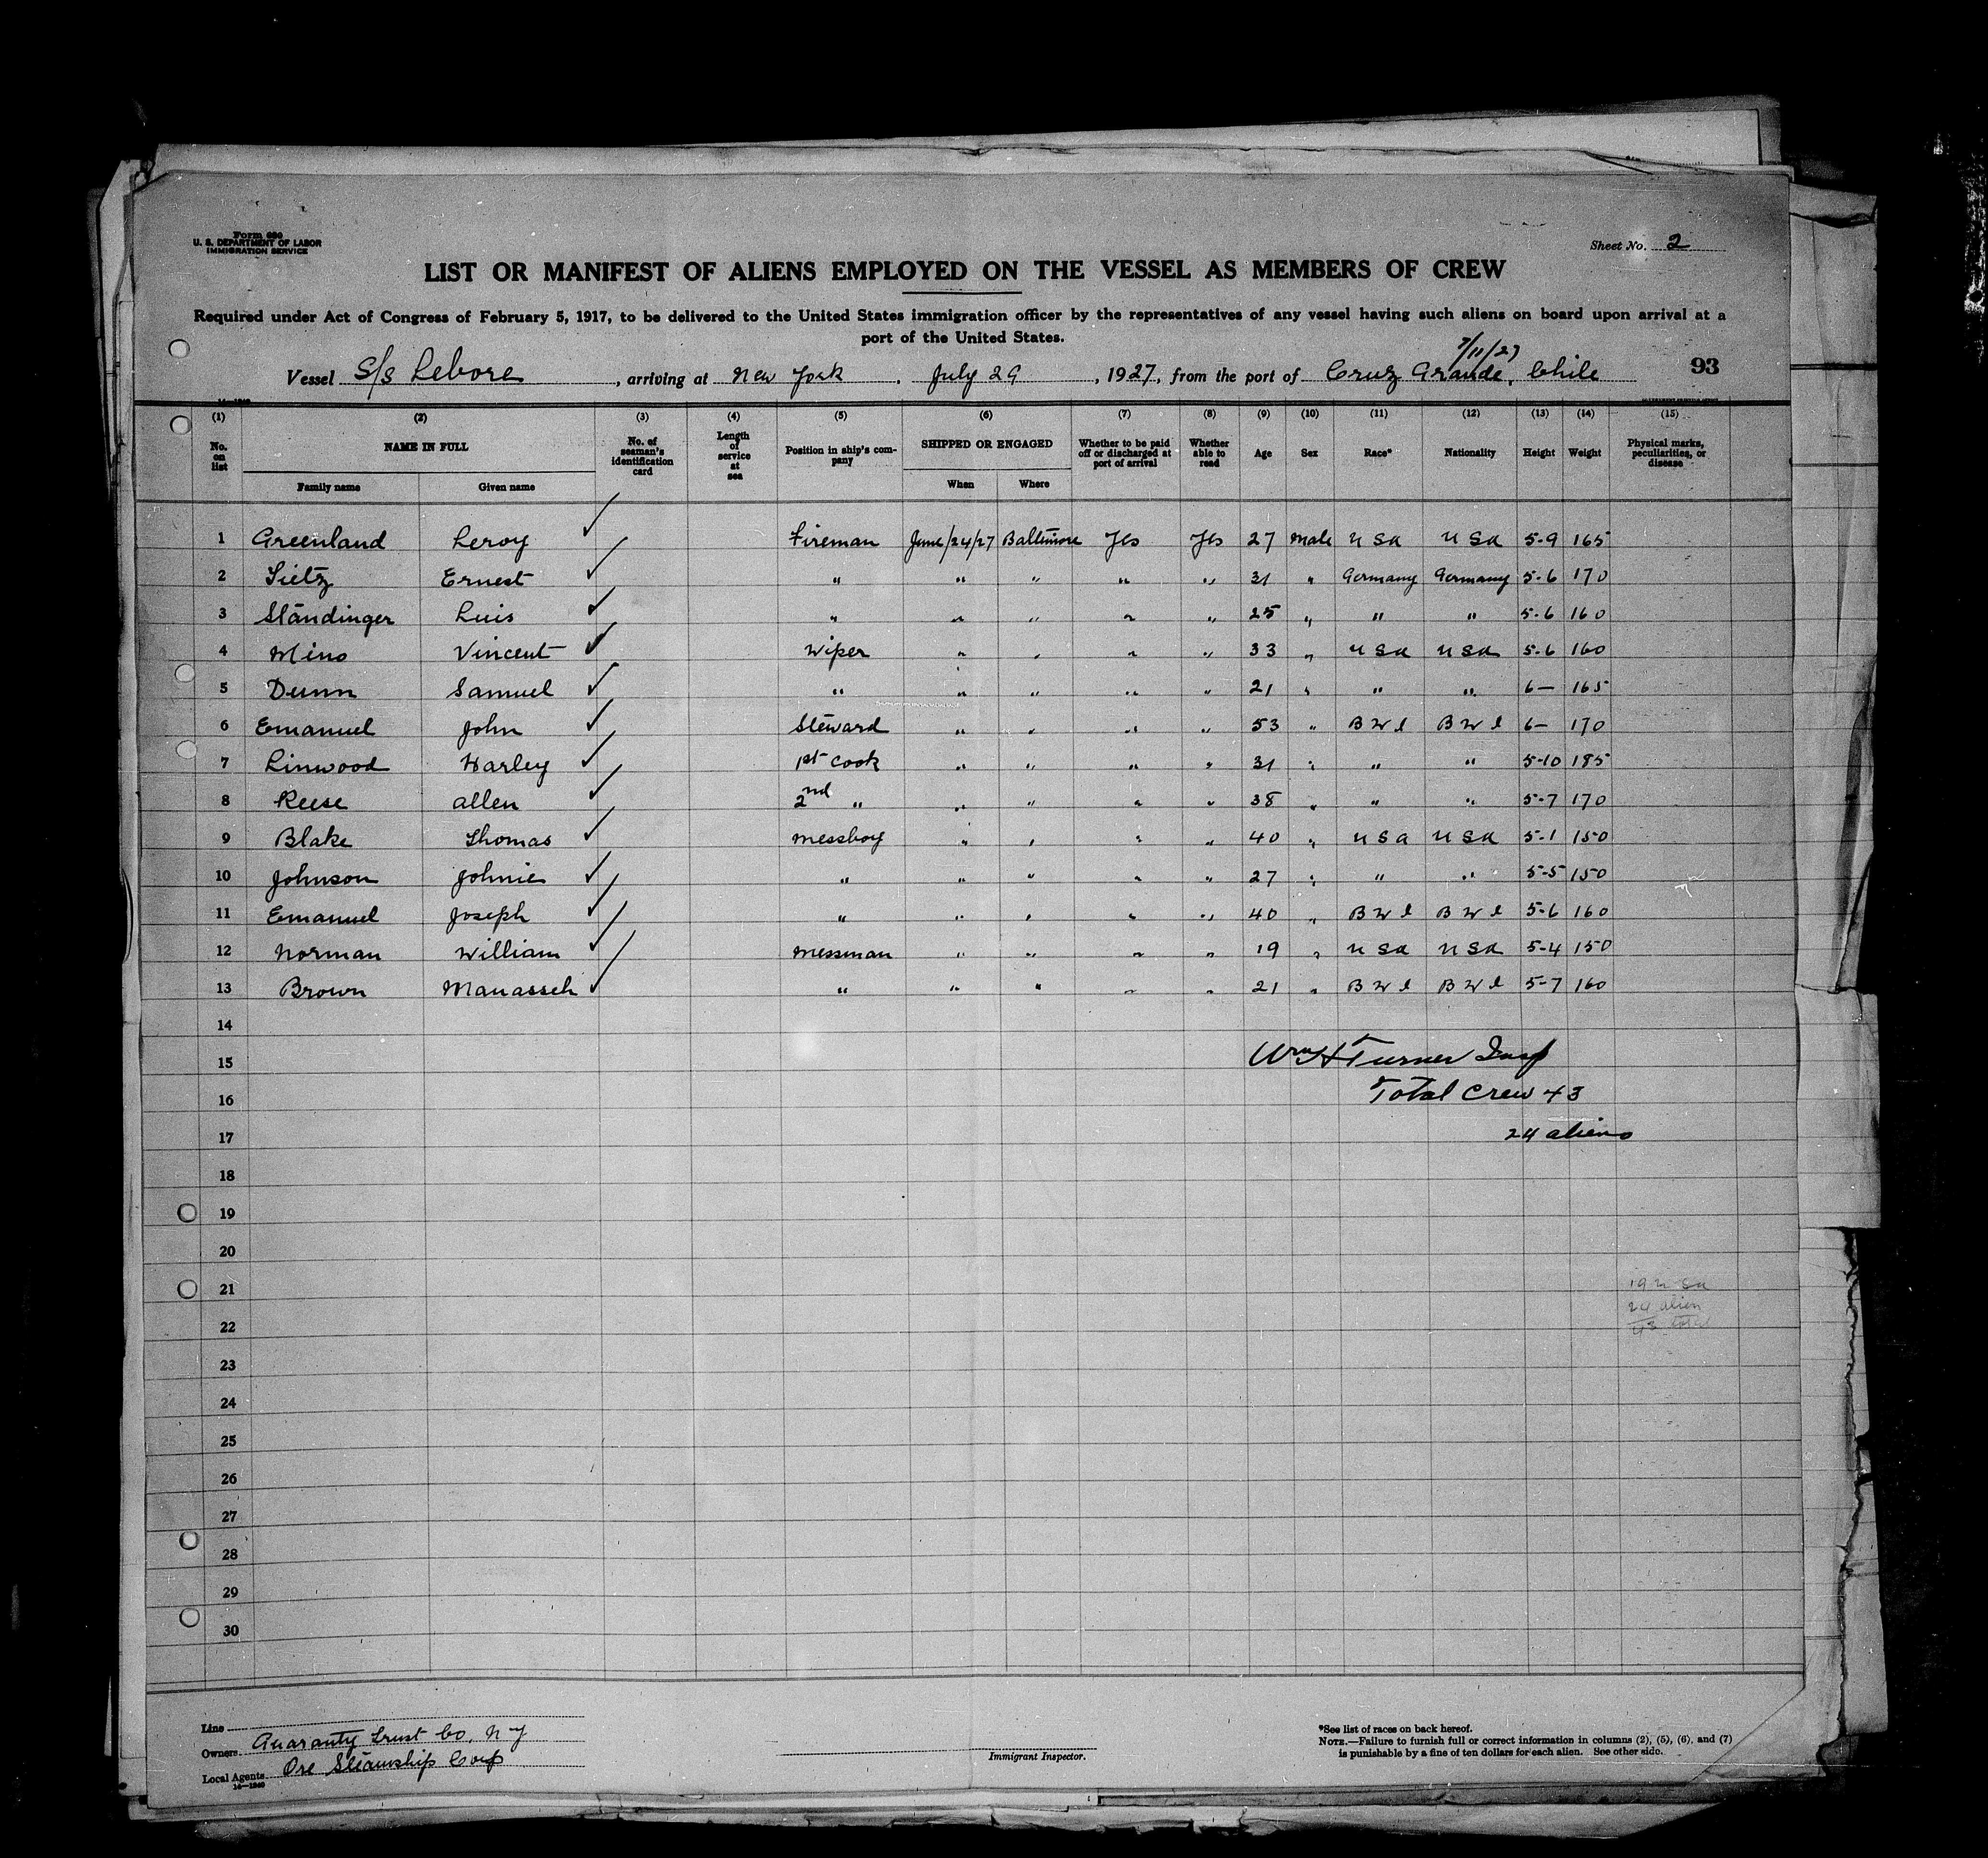 Form 680
U. S. DEPARTMENT OF LABOR
IMMIGRATION SERVICE
Sheet No. 2
LIST OR MANIFEST OF ALIENS EMPLOYED ON THE VESSEL AS MEMBERS OF CREW
Required under Act of Congress of February 5, 1917, to be delivered to the United States immigration officer by the representatives of any vessel having such aliens on board upon arrival at a
port of the United States.
7/11/27
Vessel S/s Lebore, arriving at New York, July 29, 1927, from the port of Cruz Grande, Chile 93
(1) (2) (3) (4) (5) (6) (7) (8) (9) (10) (11) (12) (13) (14) (15)
No. on list NAME IN FULL No. of seaman's identification card Length of service at sea Position in ship's company SHIPPED OR ENGAGED Whether to be paid off or discharged at port of arrival Whether able to read Age Sex Race* Nationality Height Weight Physical marks, peculiarities, or disease
Family name Given name When Where
1 Greenland Leroy ✓ Fireman June/24/27 Baltimore Yes Yes 27 Male U S a U S a 5-9 165
2 Sietz Ernest ✓ " " " " " 31 " Germany Germany 5-6 170
3 Standinger Luis ✓ " " " " " 25 " " " 5-6 160
4 Mino Vincent ✓ Wiper " " " " 33 " U S a U S a 5-6 160
5 Dunn Samuel ✓ " " " " " 21 " " " 6- 165
6 Emanuel John ✓ Steward " " " " 53 " B W I B W I 6- 170
7 Linwood Harley ✓ 1st Cook " " " " 31 " " " 5-10 185
8 Reese allen ✓ 2nd " " " " " 38 " " " 5-7 170
9 Blake Thomas ✓ messboy " " " " 40 " U S a U S a 5-1 150
10 Johnson Johnie ✓ " " " " " 27 " " " 5-5 150
11 Emanuel Joseph ✓ " " " " " 40 " B W I B W I 5-6 160
12 Norman William ✓ messman " " " " 19 " U S a U S a 5-4 150
13 Brown Manasseh ✓ " " " " " 21 " B W I B W I 5-7 160
14
15 Wm H Turner Insp
16 Total Crew 43
17 24 aliens
18
19
20
21 19 U Sa
24 alien
22 43 total
23
24
25
26
27
28
29
30
Line
Owners Guaranty Trust Co. N Y
Local Agents Ore Steamship Corp
14—1240
Immigrant Inspector.
*See list of races on back hereof.
NOTE.—Failure to furnish full or correct information in columns (2), (5), (6), and (7)
is punishable by a fine of ten dollars for each alien. See other side.